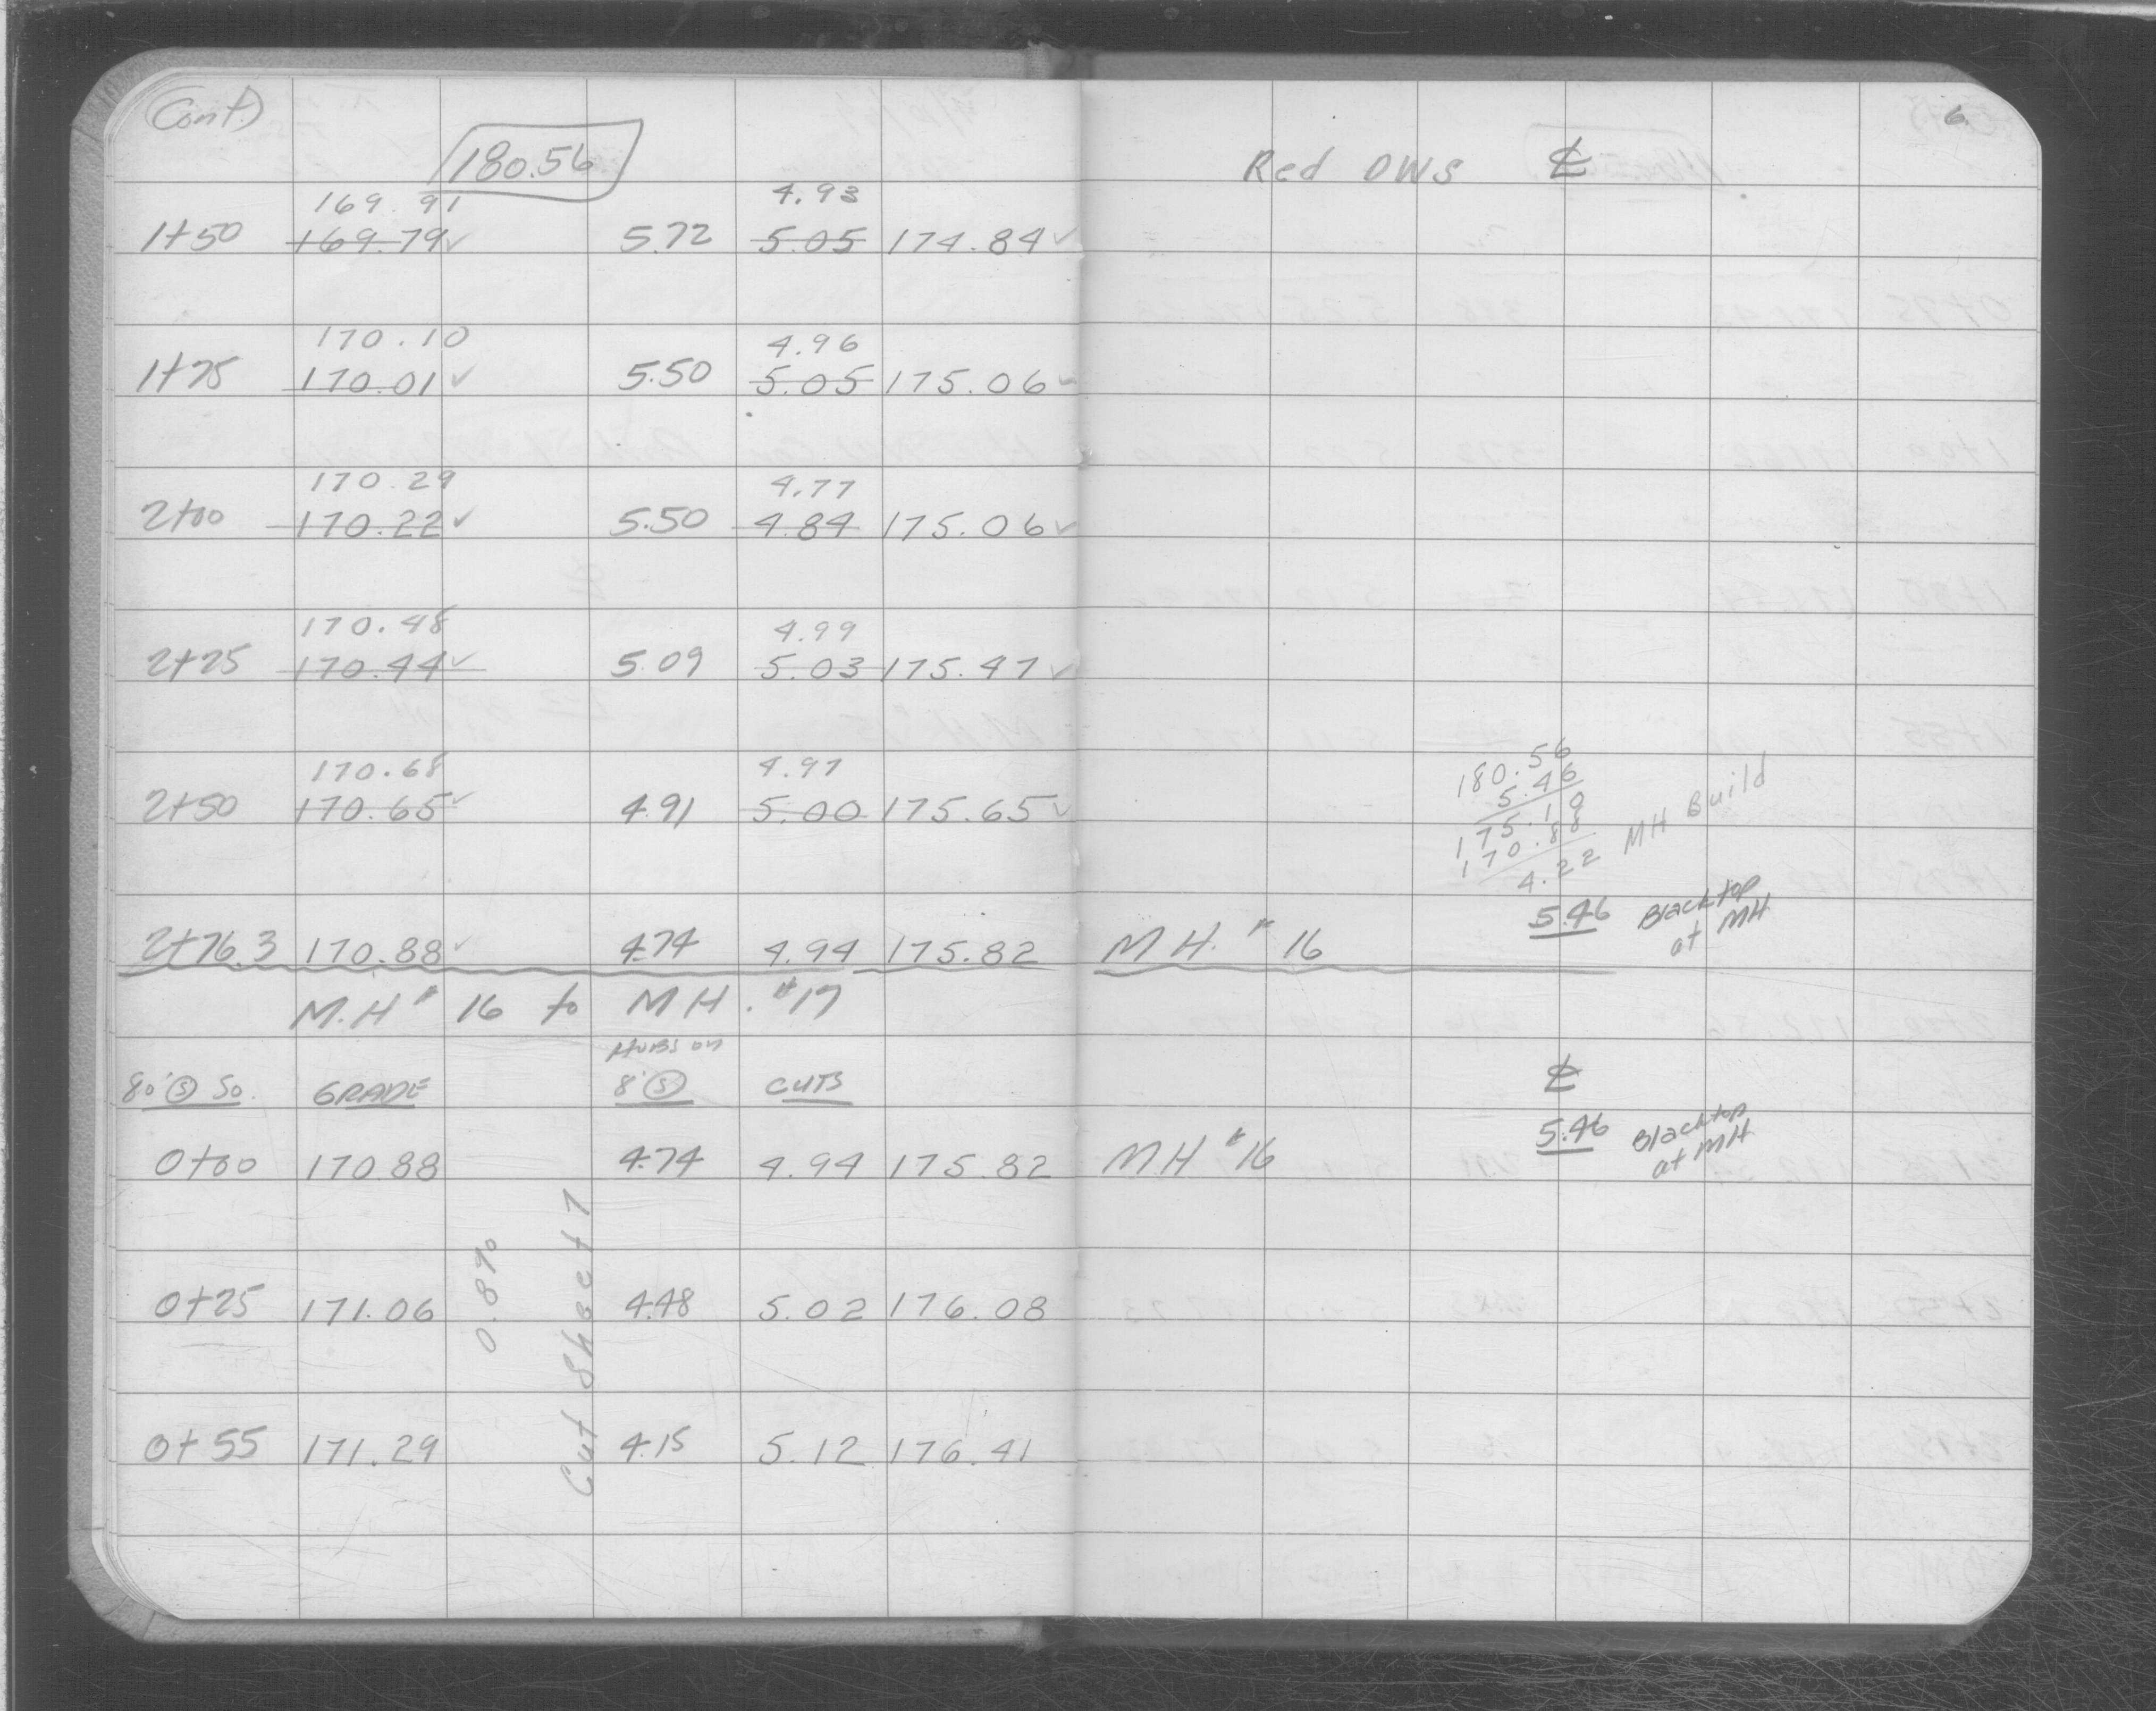 (Cont.)
6.
180.56
Red OWS ℄
169.91 4.93
1+50 169.79✓ 5.72 5.05 174.84✓
170.10 4.96
1+75 170.01✓ 5.50 5.05 175.06✓
170.29 4.77
2+00 170.22✓ 5.50 4.84 175.06✓
170.48 4.99
2+25 170.44✓ 5.09 5.03 175.47✓
170.68 4.97
2+50 170.65✓ 4.91 5.00 175.65✓
180.56
5.46
175.10
170.88
4.22
MH Build
5.46 Blacktop
at MH
2+76.3 170.88✓ 4.74 4.94 175.82 MH. # 16
M.H # 16 to MH. #17
Hubs on
80' Ⓢ So. GRADE 8' Ⓢ CUTS ℄
5.46 Blacktop
at MH
0+00 170.88 4.74 4.94 175.82 MH #16
0.8%
Cut Sheet 7
0+25 171.06 4.48 5.02 176.08
0+55 171.29 4.15 5.12 176.41